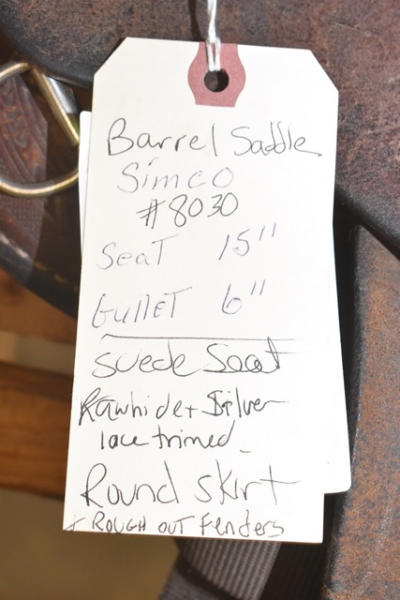 Barrel Saddle
Simco
#8030
Seat 15"
Gullet 6"
Suede Seat
Rawhide + Silver
lace trimed
Round skirt
+ ROUGH OUT Fenders